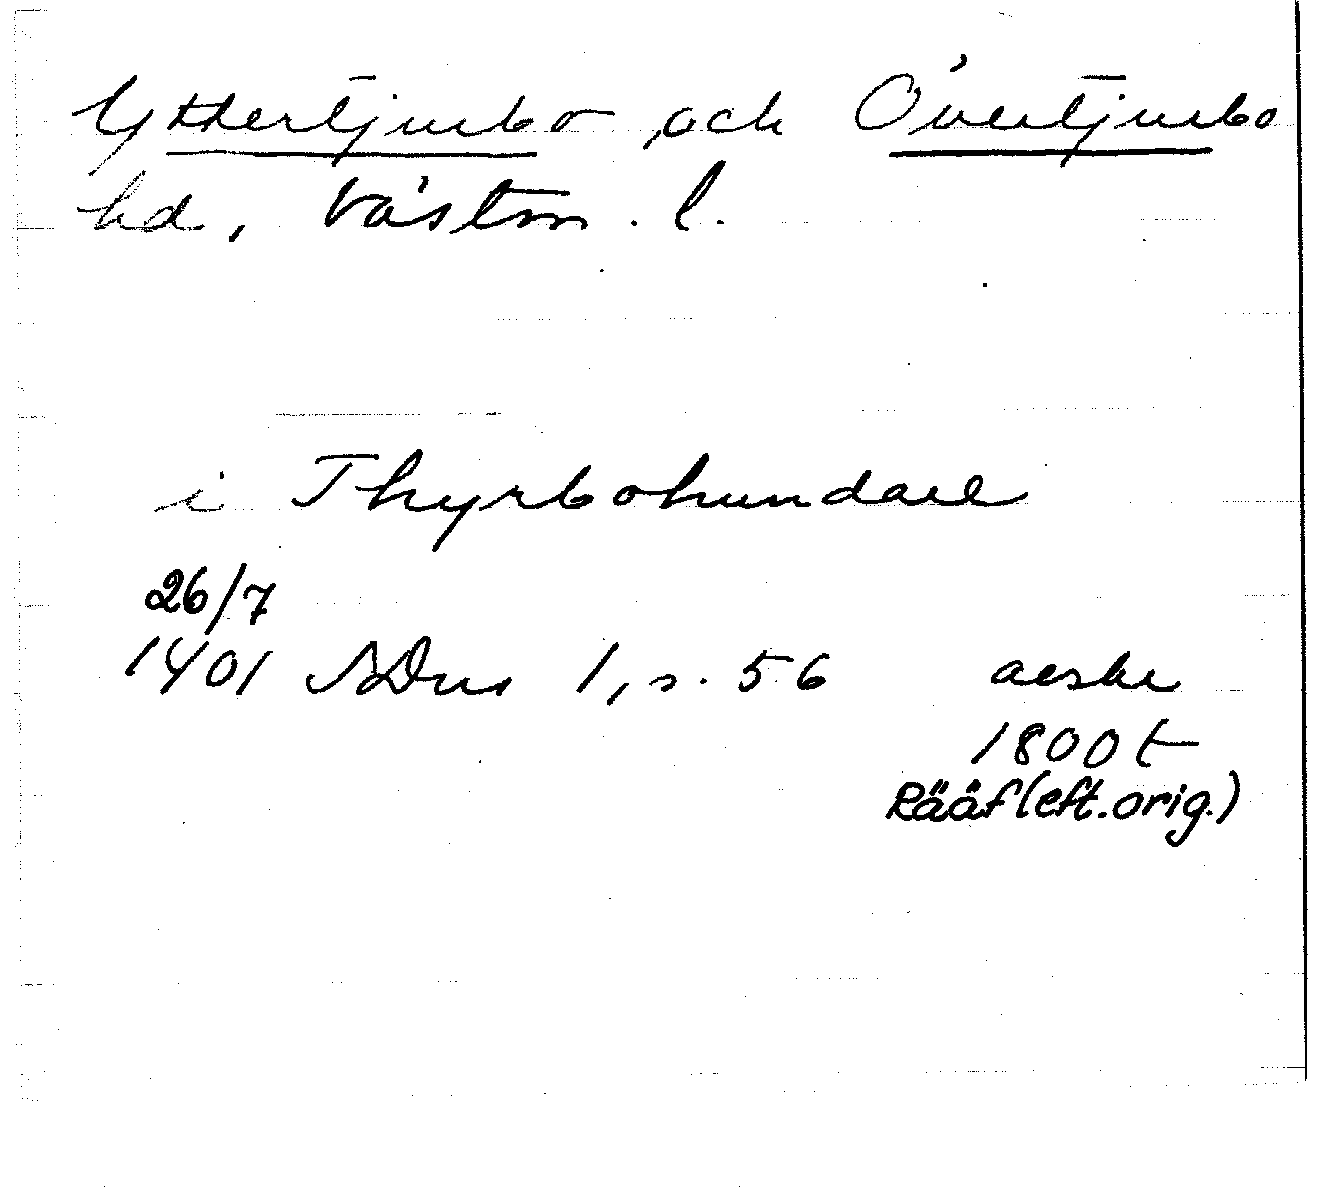 Yttertjurbo och Övertjurbo
hd, Västm. l.
i Thyrbohundare
26/7
1401 SDns 1, s. 56 avskr
1800 t
Rääf (eft. orig.)